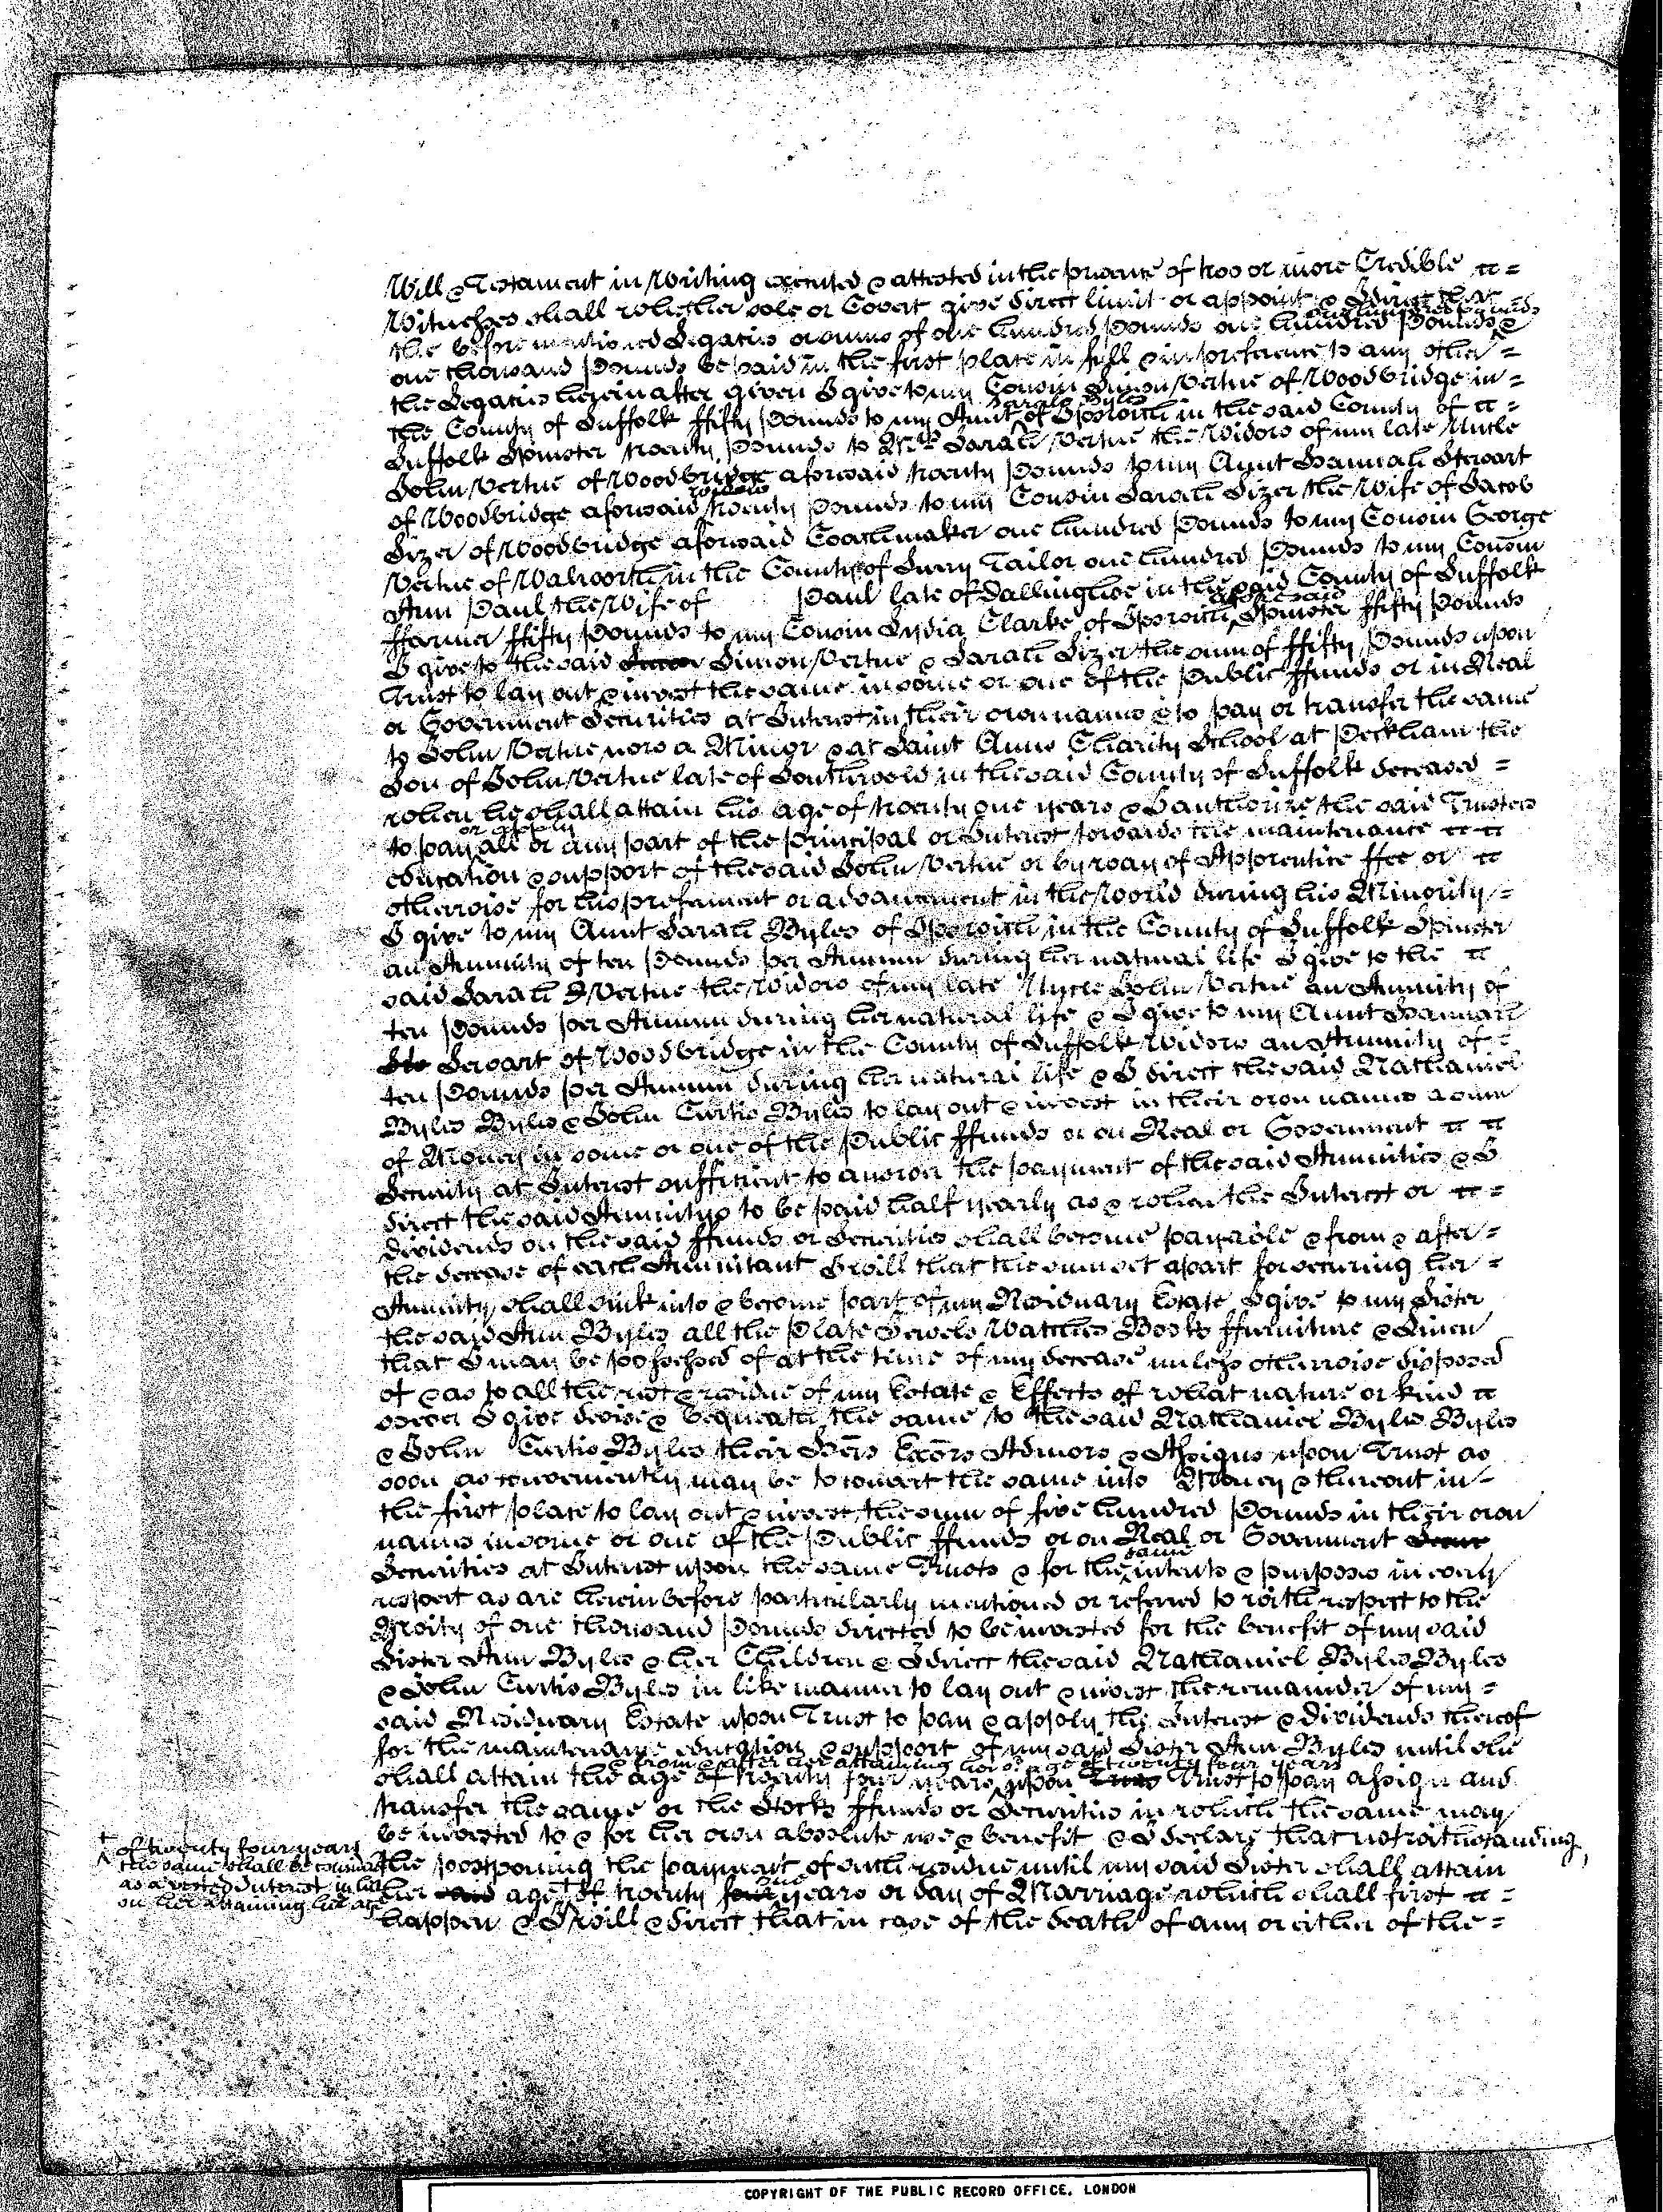 Will & Testament in Writing executed & attested in the presence of two or more Credible
Witnesses shall whether sole or Covert give direct limit or appoint & I direct that
one hundred pounds
the before mentioned Legacies or sums of one hundred Pounds one hundred Pounds &
one thousand Pounds be paid in the first place in full & in preference to any other =
the Legacies hereinafter given I give to my Cousin Simon Vertue of Woodbridge in =
Sarah Byles
the County of Suffolk ffifty Pounds to my Aunt of Ipswich in the said County of
Suffolk Spinster twenty Pounds to Mrs Sarah Vertue the Widow of my late Uncle
John Vertue of Woodbridge aforesaid twenty Pounds to my Aunt Hannah Stewart
widow
of Woodbridge aforesaid twenty Pounds to my Cousin Sarah Sizer the Wife of Jacob
Sizer of Woodbridge aforesaid Coachmaker one hundred Pounds to my Cousin George
Vertue of Walworth in the County of Surry Tailor one hundred Pounds to my Cousin
Ann Paul the Wife of Paul late of Dallinghoe in the said County of Suffolk
aforesaid
ffarmer ffifty Pounds to my Cousin Lydia Clarke of Ipswich Spinster ffifty Pounds
I give to the said Simon Vertue & Sarah Sizer the sum of ffifty Pounds upon
Trust to lay out & invest the same in some or one of the Public ffunds or in Real
or Government Securities at Interest in their own names & to pay or transfer the same
to John Vertue now a Minor & at Saint Anns Charity School at Peckham the
Son of John Vertue late of Southwold in the said County of Suffolk deceased =
when he shall attain his age of twenty one years & I authorize the said Trustees
or apply
to pay all or any part of the Principal or Interest towards the maintenance
education & support of the said John Vertue or by way of Apprentice ffee or
otherwise for his preferment or advancement in the World during his Minority =
I give to my Aunt Sarah Byles of Ipswich in the County of Suffolk Spinster
an Annuity of ten Pounds per Annum during her natural life I give to the
said Sarah Vertue the Widow of my late Uncle John Vertue an Annuity of
ten Pounds per Annum during her natural life & I give to my Aunt Hannah
Ste Sewart of Woodbridge in the County of Suffolk Widow an Annuity of =
ten Pounds per Annum during her natural life & I direct the said Nathaniel
Byles Byles & John Curtis Byles to lay out & invest in their own names a sum
of Money in some or one of the Public ffunds or on Real or Government
Security at Interest sufficient to answer the payment of the said Annuities & I
direct the said Annuitys to be paid half yearly as & when the Interest or =
dividends on the said ffunds or Securities shall become payable & from & after =
the decease of each Annuitant I will that the sum set apart for securing her =
Annuity shall sink into & become part of my Residuary Estate I give to my Sister
the said Ann Byles all the Plate Jewels Watches Books ffurniture & Linen
that I may be possessed of at the time of my decease unless otherwise disposed
of & as to all the rest & residue of my Estate & Effects of what nature or kind
soever I give devise & bequeath the same to the said Nathaniel Byles Byles
& John Curtis Byles their Hēirs Exōrs Admors & Assigns upon Trust as
soon as conveniently may be to convert the same into Money & thereout in
the first place to lay out & invest the sum of five hundred Pounds in their own
names in some or one of the Public ffunds or on Real or Government
same
Securities at Interest upon the same Trusts & for the intents & purposes in every
respect as are herein before particularly mentioned or referred to with respect to the
Moity of one thousand Pounds directed to be invested for the benefit of my said
Sister Ann Byles & her Children & I direct the said Nathaniel Byles Byles
& John Curtis Byles in like manner to lay out & invest the remainder of my =
said Residuary Estate upon Trust to pay & apply the Interest & Dividends thereof
for the maintenance education & support of my said Sister Ann Byles until she
& from & after her attaining her age of twenty four years
shall attain the age of twenty four years upon Trust to pay assign and
transfer the same or the Stocks ffunds or Securities in which the same may
be invested to & for her own absolute use & benefit & I declare that notwithstanding
the postponing the payment of such residue until my said Sister shall attain
one
her said age of twenty four years or day of Marriage which shall first =
happen & I will & direct that in case of the death of any or either of the =
of twenty four years
the same shall be considered
as a vested Interest in her
on her attaining her age
COPYRIGHT OF THE PUBLIC RECORD OFFICE, LONDON